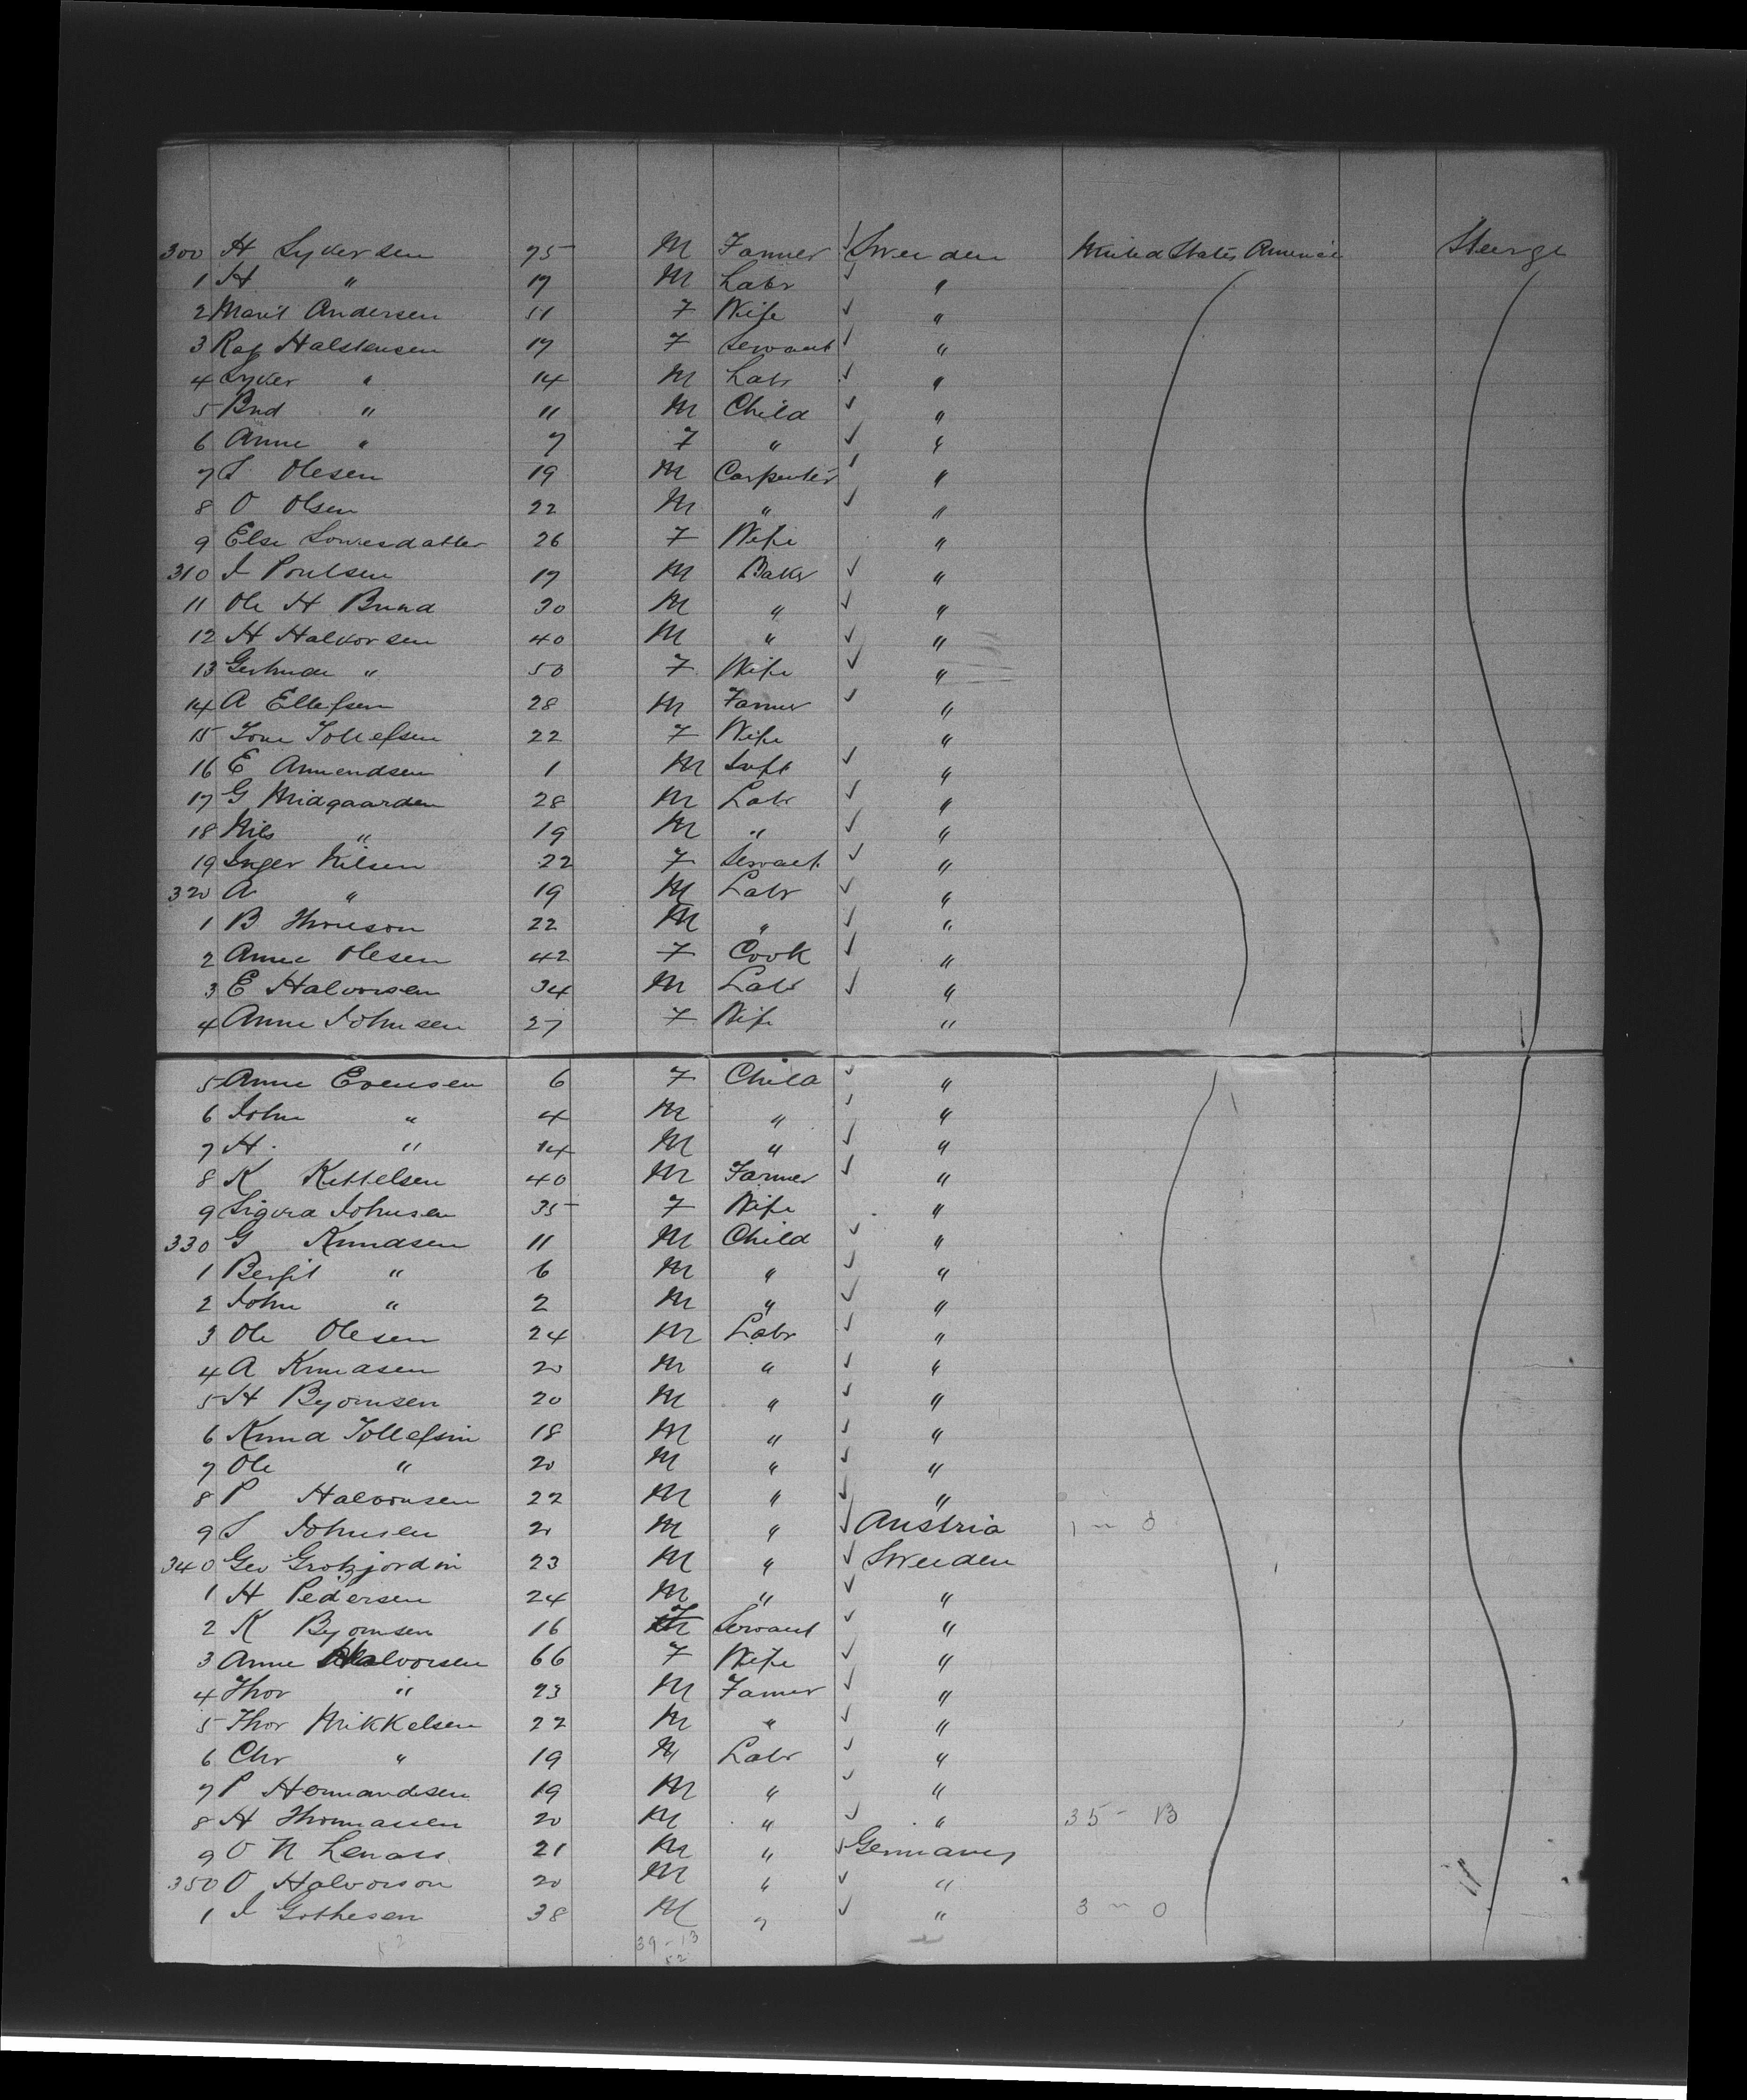 300 H Syversen 75 M Farmer ✓ Sweeden United States America Steerge
1 H " 17 M Labr ✓ "
2 Marit Andersen 51 F Wife ✓ "
3 Rag Halstensen 17 F Servant ✓ "
4 Syver " 14 M Labr ✓ "
5 " 11 M Child ✓ "
6 Anne " 7 F " ✓ "
7 S Olesen 19 M Carpenter ✓ "
8 O Olsen 22 M " ✓ "
9 Else 26 F Wife "
310 I Poulsen 17 M Baker ✓ "
11 Ole H 30 M " ✓ "
12 H Halvorsen 40 M " ✓ "
13 Gertrude " 50 F Wife ✓ "
14 A Ellefsen 28 M Farmer ✓ "
15 Tollefsen 22 F Wife "
16 E Amundsen 1 M Inft ✓ "
17 G Midgaarden 28 M Labr ✓ "
18 Nils " 19 M " ✓ "
19 Inger Nilsen 22 F Servant ✓ "
320 A " 19 M Labr ✓ "
1 B 22 M " ✓ "
2 Anne Olesen 42 F Cook ✓ "
3 E Halvorsen 34 M Labr ✓ "
4 Anne Johnsen 27 F Wife "
5 Anne Evensen 6 F Child ✓ "
6 John " 4 M " ✓ "
7 H " 14 M " ✓ "
8 K Kettelsen 40 M Farmer ✓ "
9 Johnsen 35 F Wife "
330 G Knudsen 11 M Child ✓ "
1 " 6 M " ✓ "
2 John " 2 M " ✓ "
3 Ole Olesen 24 M Labr ✓ "
4 A Knudsen 20 M " ✓ "
5 H Byornsen 20 M " ✓ "
6 Knud Tollefsen 18 M " ✓ "
7 Ole " 20 M " ✓ "
8 P Halvorsen 22 M " ✓ "
9 S Johnsen 21 M " ✓ Austria 1 – 0
340 Geo 23 M " ✓ Sweeden
1 H Pedersen 24 M " ✓ "
2 K Byornsen 16 F Servant ✓ "
3 Anne Halvorsen 66 F Wife ✓ "
4 Thor " 23 M Farmer ✓ "
5 Thor Mikkelsen 22 M " ✓ "
6 Chr " 19 M Labr ✓ "
7 P 19 M " ✓ "
8 H Thomassen 20 M " ✓ " 35 – 13
9 O N 21 M " ✓ Germany
350 O Halvorson 20 M " ✓ "
1 I Gothesen 38 M " ✓ " 3 – 0
52 39 – 13
52